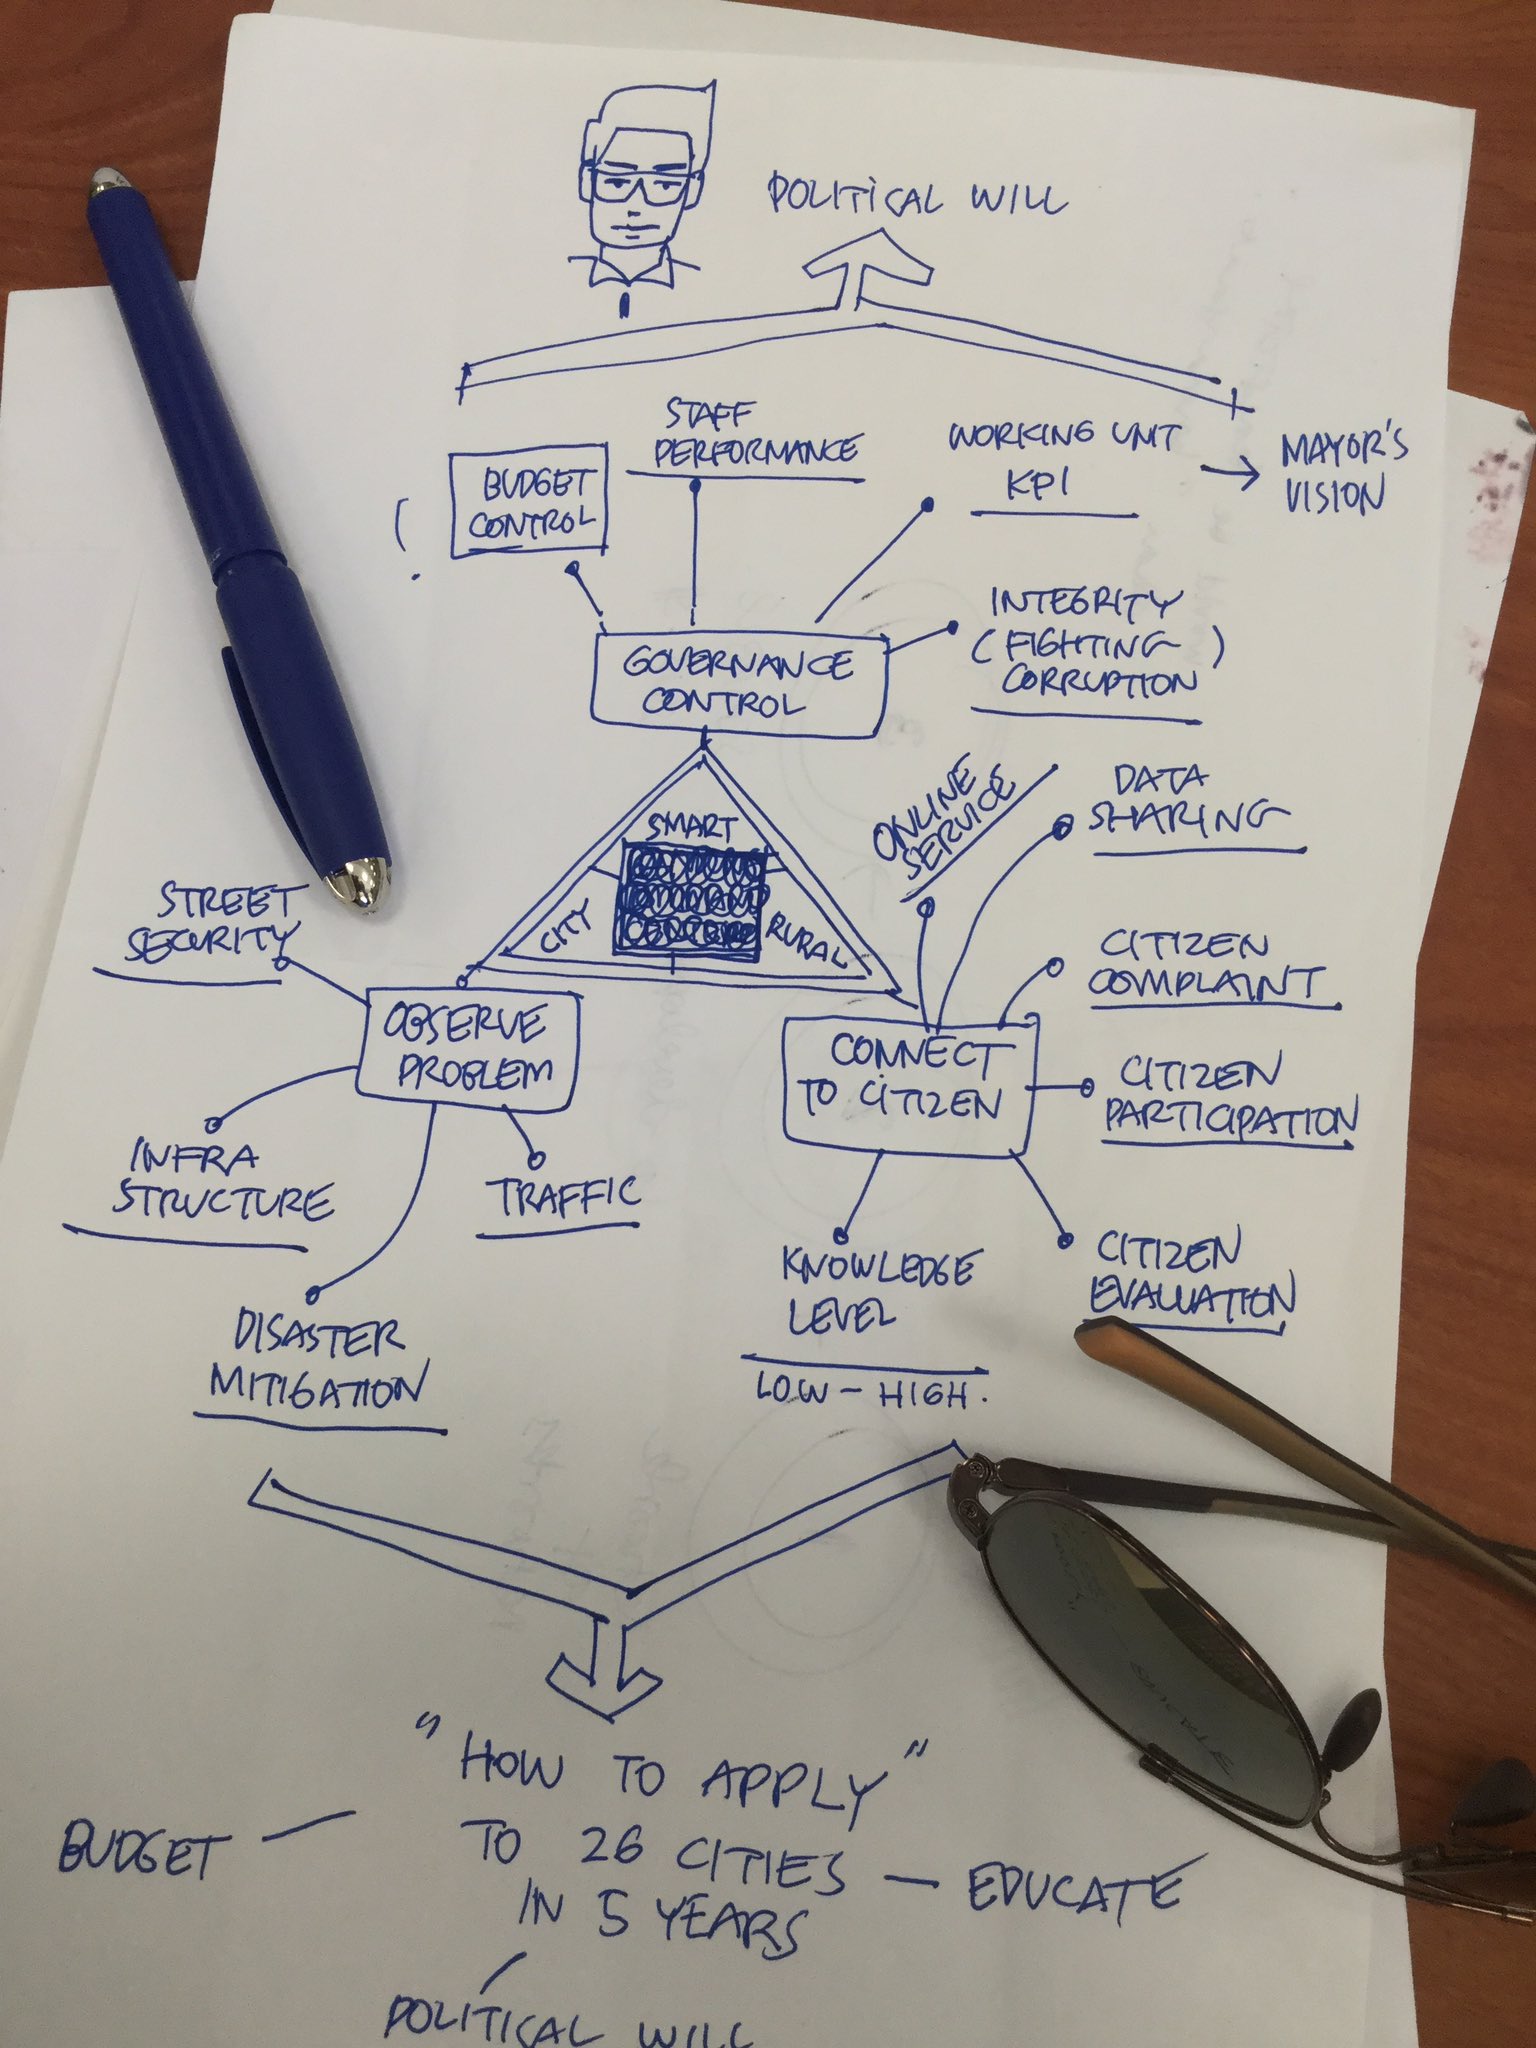 POLITICAL WILL
BUDGET
CONTROL
STAFF
PERFORMANCE
WORKING UNIT
KPI
MAYOR'S
VISION
INTEGRITY
(FIGHTING)
CORRUPTION
GOVERNANCE
CONTROL
SMART
CITY
RURAL
ONLINE
SERVICE
DATA
SHARING
STREET
SECURITY
CITIZEN
COMPLAINT
OBSERVE
PROBLEM
CONNECT
TO CITIZEN
CITIZEN
PARTICIPATION
INFRA
STRUCTURE
TRAFFIC
DISASTER
MITIGATION
KNOWLEDGE
LEVEL
LOW - HIGH.
CITIZEN
EVALUATION
"HOW TO APPLY"
TO 26 CITIES
IN 5 YEARS
BUDGET
EDUCATE
POLITICAL WILL